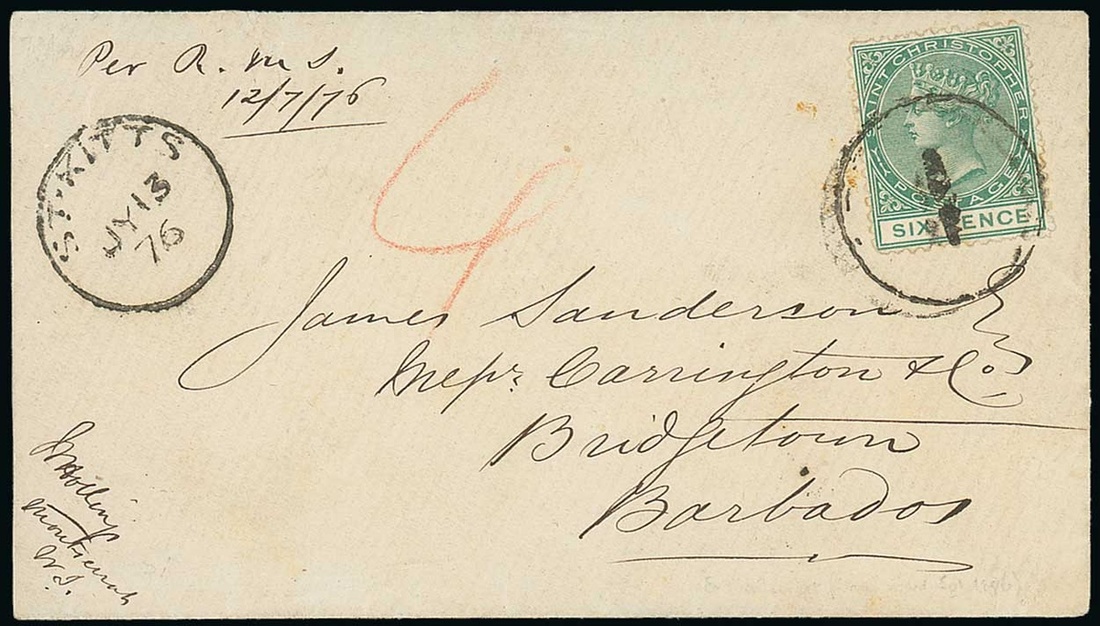 Per R. M S.
12/7/76
ST. KITTS
JY 13
76
4
SAINT CHRISTOPHER
POSTAGE
SIX PENCE
James Sanderson Esq
Messrs. Carrington & Co.
Bridgetown
Barbados
Montserrat
W. I.